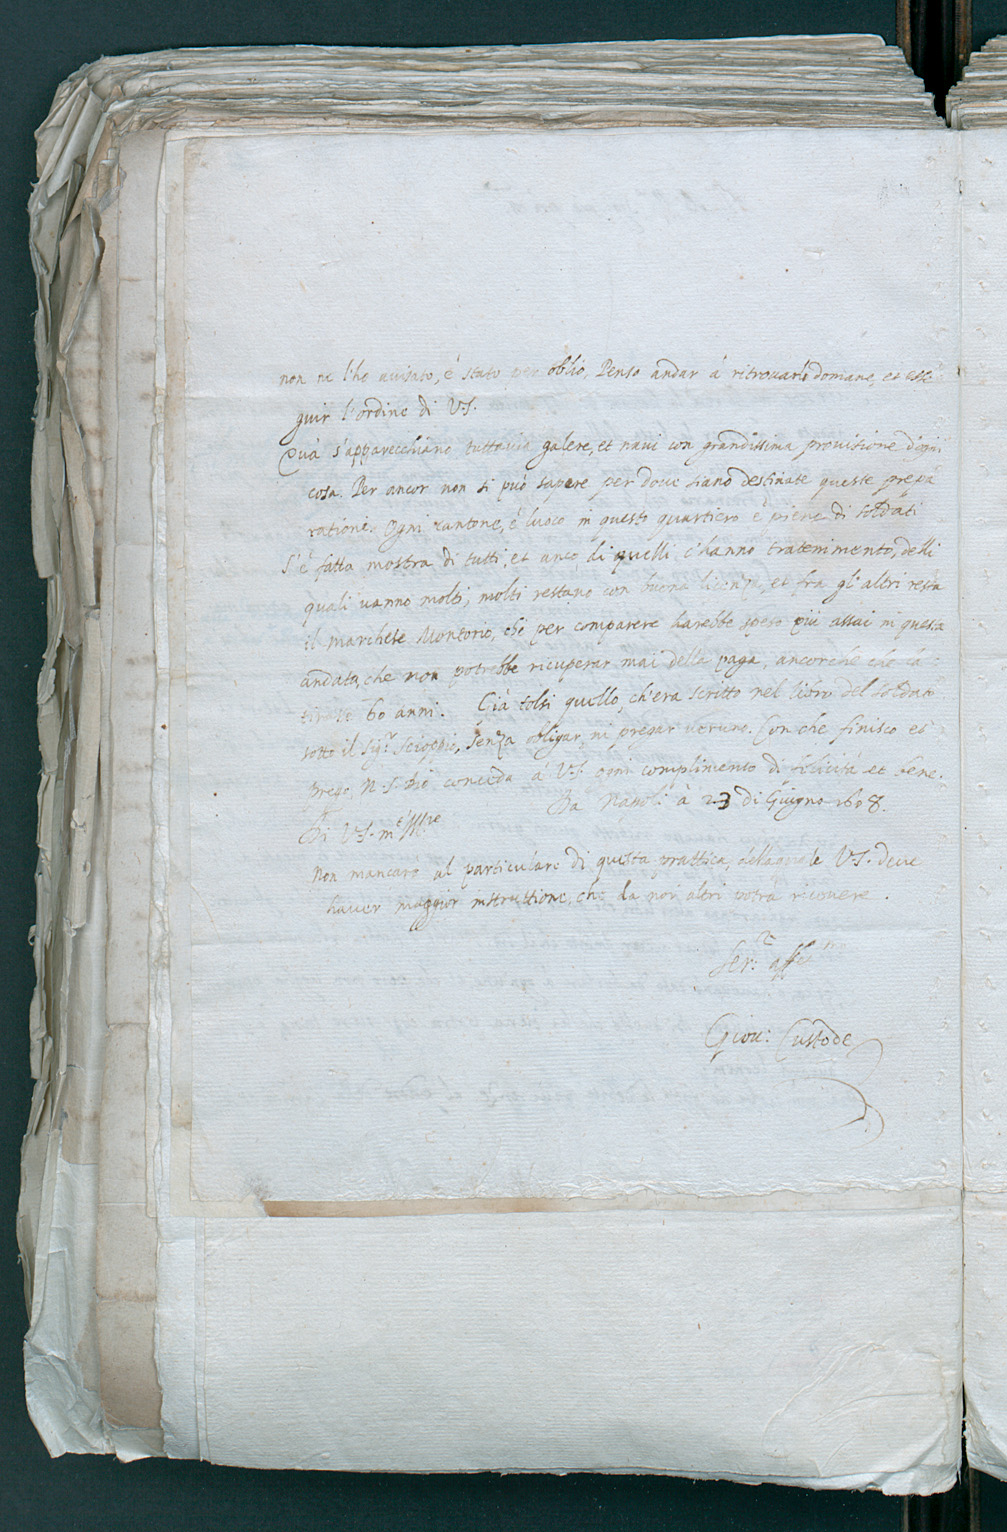 non ne l'ho avisato, è stato per oblio, Penso andar à ritrovarlo domane, et esse
guir l'ordine di V.S.
Quà s'apparecchiano tuttavia galere, et navi con grandissima provisione d'ogni
cosa. Per ancor non si può sapere per dove siano destinate queste prepa
rationi. Ogni cantone, è luoco in questo quartiero è pieno di soldati
S'è fatta mostra di tutti, et anco di quelli c'hanno tratenimento, delli
quali vanno molti, molti restano con buona licenza, et fra gl'altri resta
il marchese Montorio, che per comparere harebbe speso più assai in questa
andata, che non potrebbe ricuperar mai delle paga, ancorche che la
tirasse 60 anni. Già tolsi quello, ch'era scritto nel libro del soldato
sotto il Sigr Scioppio, senza obligar ni pregar veruno. Con che finisco et
prego, N.S. Dio conceda à V.S. ogni complimento di felicità et bene.
Da Napoli à 23 di Giugno 1608.
Di V.S. m.e Ill.re
Non mancarò al particulare di questa prattica, della quale V.S. deve
haver maggior instruttione, che da noi altri potrà ricevere.
Ser.r aff.mo
Giov: Custode